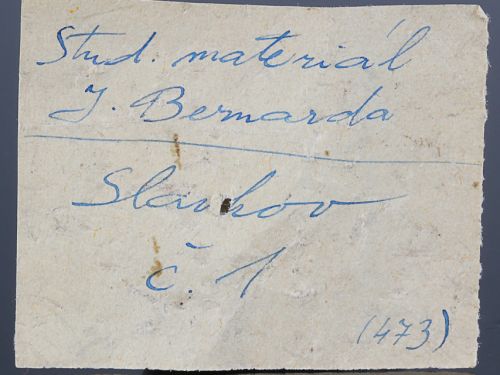 Stud. materiál
J. Bernarda
Slavkov
č. 1
(473)